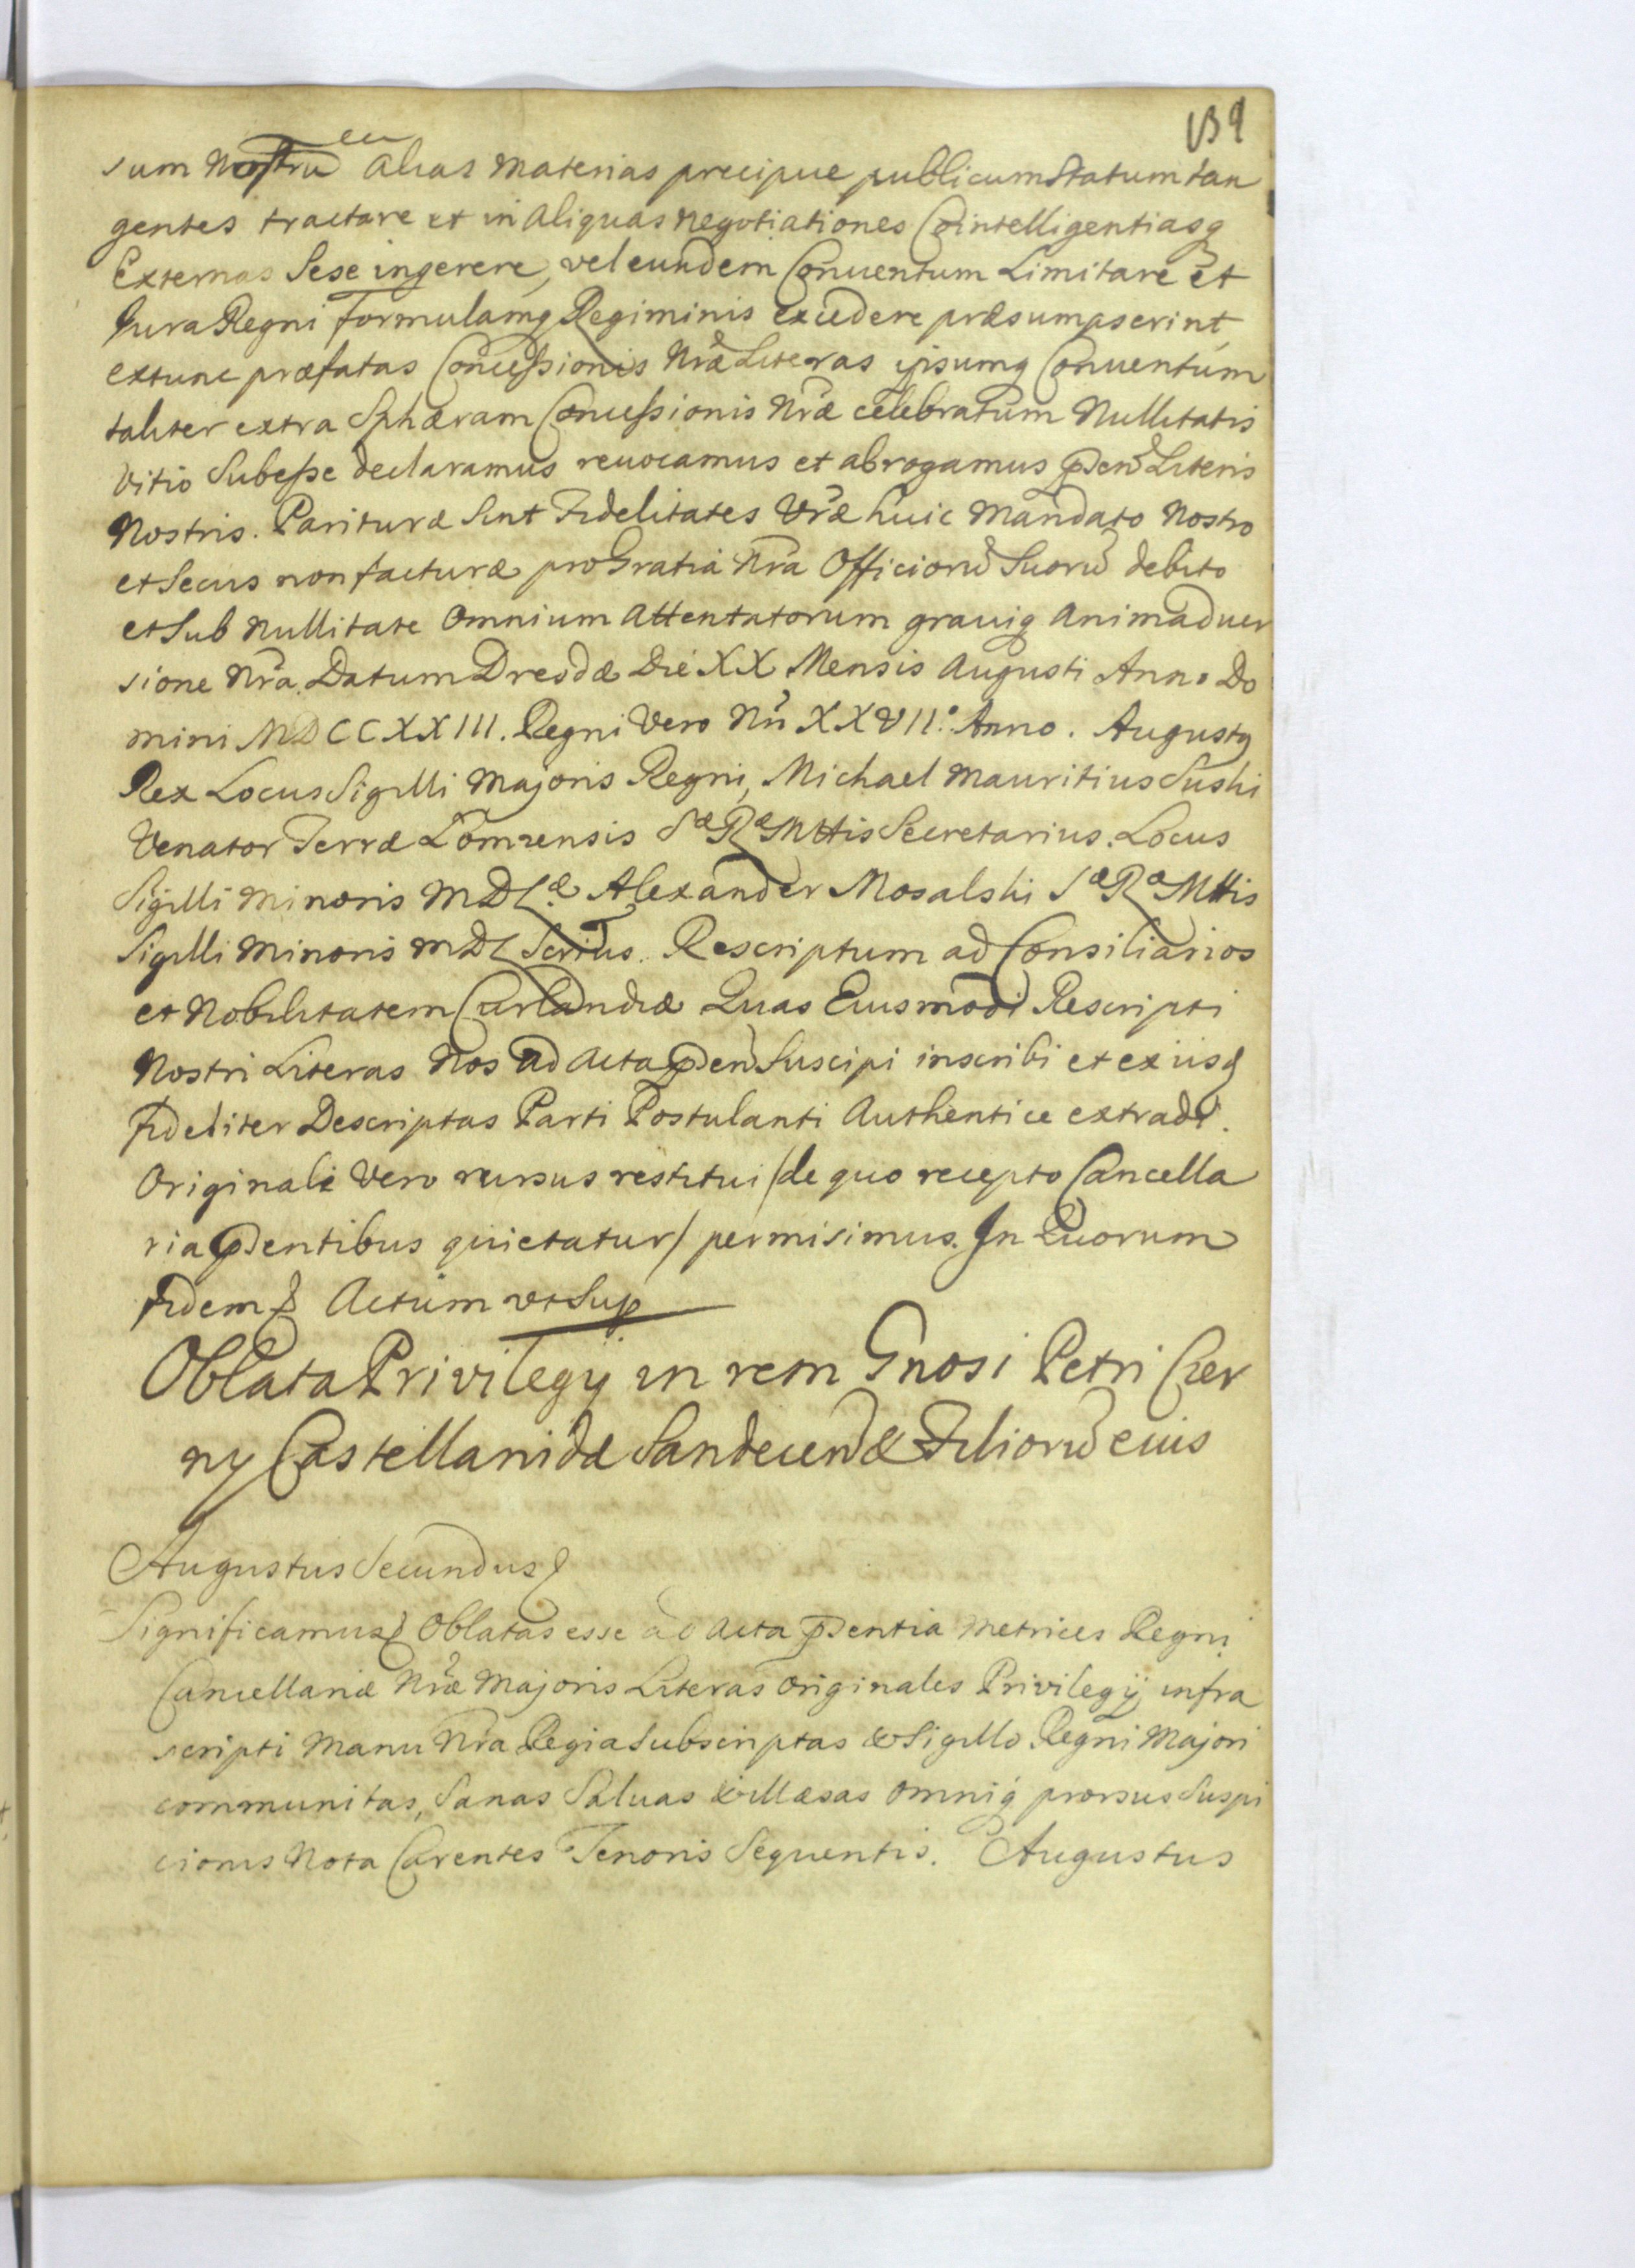 139
sum Nostrū eu Alias Materias precipue publicum Statum tan
gentes tractare et in Aliquas negotiationes Cointelligentiasq
Externas Sese ingerere, vel eundem Conuentum Limitare et
Jura Regni Formulamq Regiminis excedere præsumpserint,
extunc præfatas Concessionis Nræ Literas ipsumq Conuentum
taliter extra Sphæram Concessionis Nræ celebratum Nullitatis
Vitio Subesse declaramus reuocamus et abrogamus p̄sen̄ Literis
Nostris. Parituræ Sint Fidelitates Vræ huic Mandato Nostro
et Secus non facturæ pro Gratia Nra Officiorū Suorū debito
et Sub Nullitate Omnium Attentatorum grauiq Animaduer
sione Nra. Datum Dresdæ Die XX Mensis Augusti Anno Do
mini MDCCXXIII. Regni Vero Nri XXVII.º Anno. Augustq
Rex Locus Sigilli Majoris Regni, Michael Mauritius Suski
Venator Terræ Lomzensis Sæ Ræ Mttis Secretarius. Locus
Sigilli Minoris MDLæ Alexander Mosalski Sæ Ræ Mttis
Sigilli Minoris MDL Scrius. Rescriptum ad Consiliarios
et Nobilitatem Curlandiæ Quas Eiusmodi Rescripti
Nostri Literas Nos ad Acta p̄sen̄ Suscipi inscribi et ex iisq
fideliter Descriptas Parti Postulanti Authentice extradi.
Originali Vero rursus restitui /de quo recepto Cancella
ria p̄sentibus quietatur/ permisimus. In Quorum
fidem & Actum ut Sup
Oblata Privilegij in rem Gnosi Petri Czer
ny Castellanidæ Sandecen̄ & Filiorū eius
Augustus Secundus &
Significamus & Oblatas esse ad Acta p̄sentia Metrices Regni
Cancellariæ Nræ Majoris Literas Originales Privilegij infra
scripti Manu Nra Regia Subscriptas & Sigillo Regni Majori
communitas, Sanas Saluas & illæsas Omniq prorsus Suspi
cionis Nota Carentes Tenoris Sequentis. Augustus